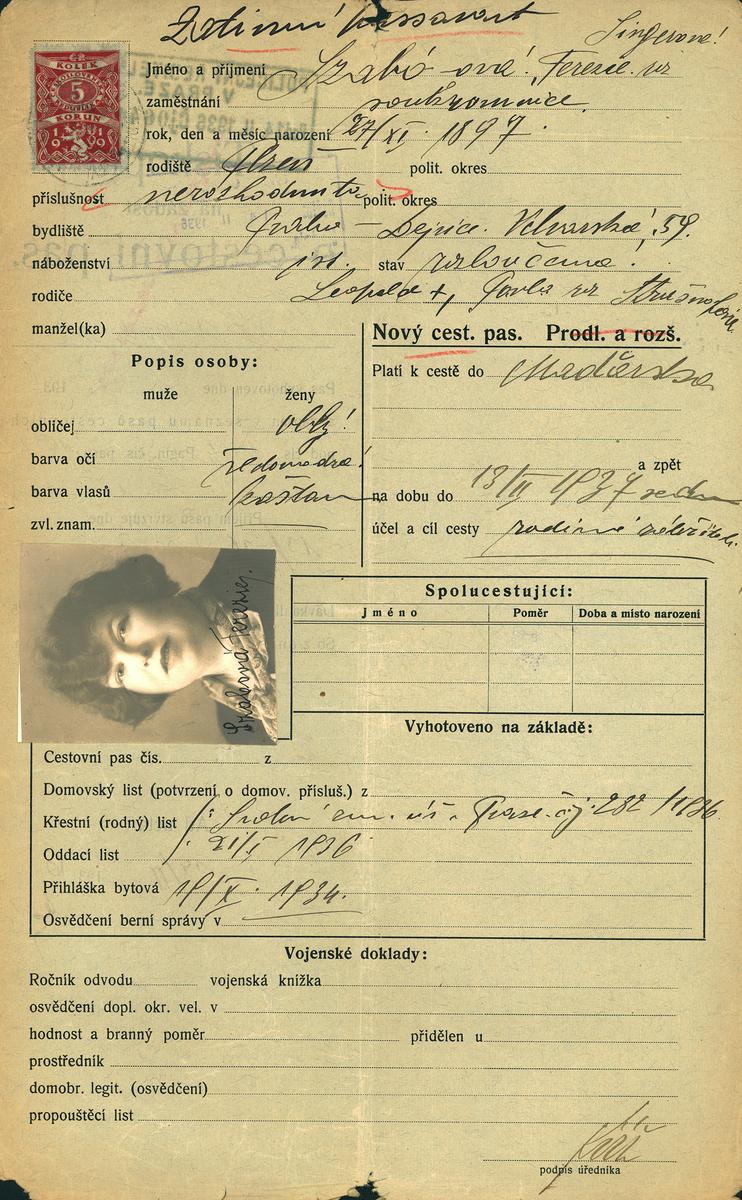 Singerová!
KOLEK
5
KORUN
1919
Jméno a příjmení Szabó-ová! Terezie. roz
zaměstnání soukromnice.
rok, den a měsíc narození 27/XI. 1897.
rodiště Plzeň polit. okres
příslušnost nerozhodnuta polit. okres
bydliště Praha – Dejvice. Velvarská, 59.
náboženství isr. stav rozloučená!
rodiče Leopold +, roz
manžel(ka)
Nový cest. pas. Prodl. a rozš.
Popis osoby:
Platí k cestě do Maďarska
muže ženy
obličej oblý!
barva očí šedomodrá!
a zpět
barva vlasů kaštan
na dobu do 18/II 1937
zvl. znam.
účel a cíl cesty rodinné záležitosti.
Szabová Terezie.
Spolucestující:
Jméno Poměr Doba a místo narození
Vyhotoveno na základě:
Cestovní pas čís. z
Domovský list (potvrzení o domov. přísluš.) z
Křestní (rodný) list Praze čj. 282/1936
Oddací list 1936
Přihláška bytová 19/X. 1934.
Osvědčení berní správy v
Vojenské doklady:
Ročník odvodu vojenská knížka
osvědčení dopl. okr. vel. v
hodnost a branný poměr přidělen u
prostředník
domobr. legit. (osvědčení)
propouštěcí list
podpis úředníka